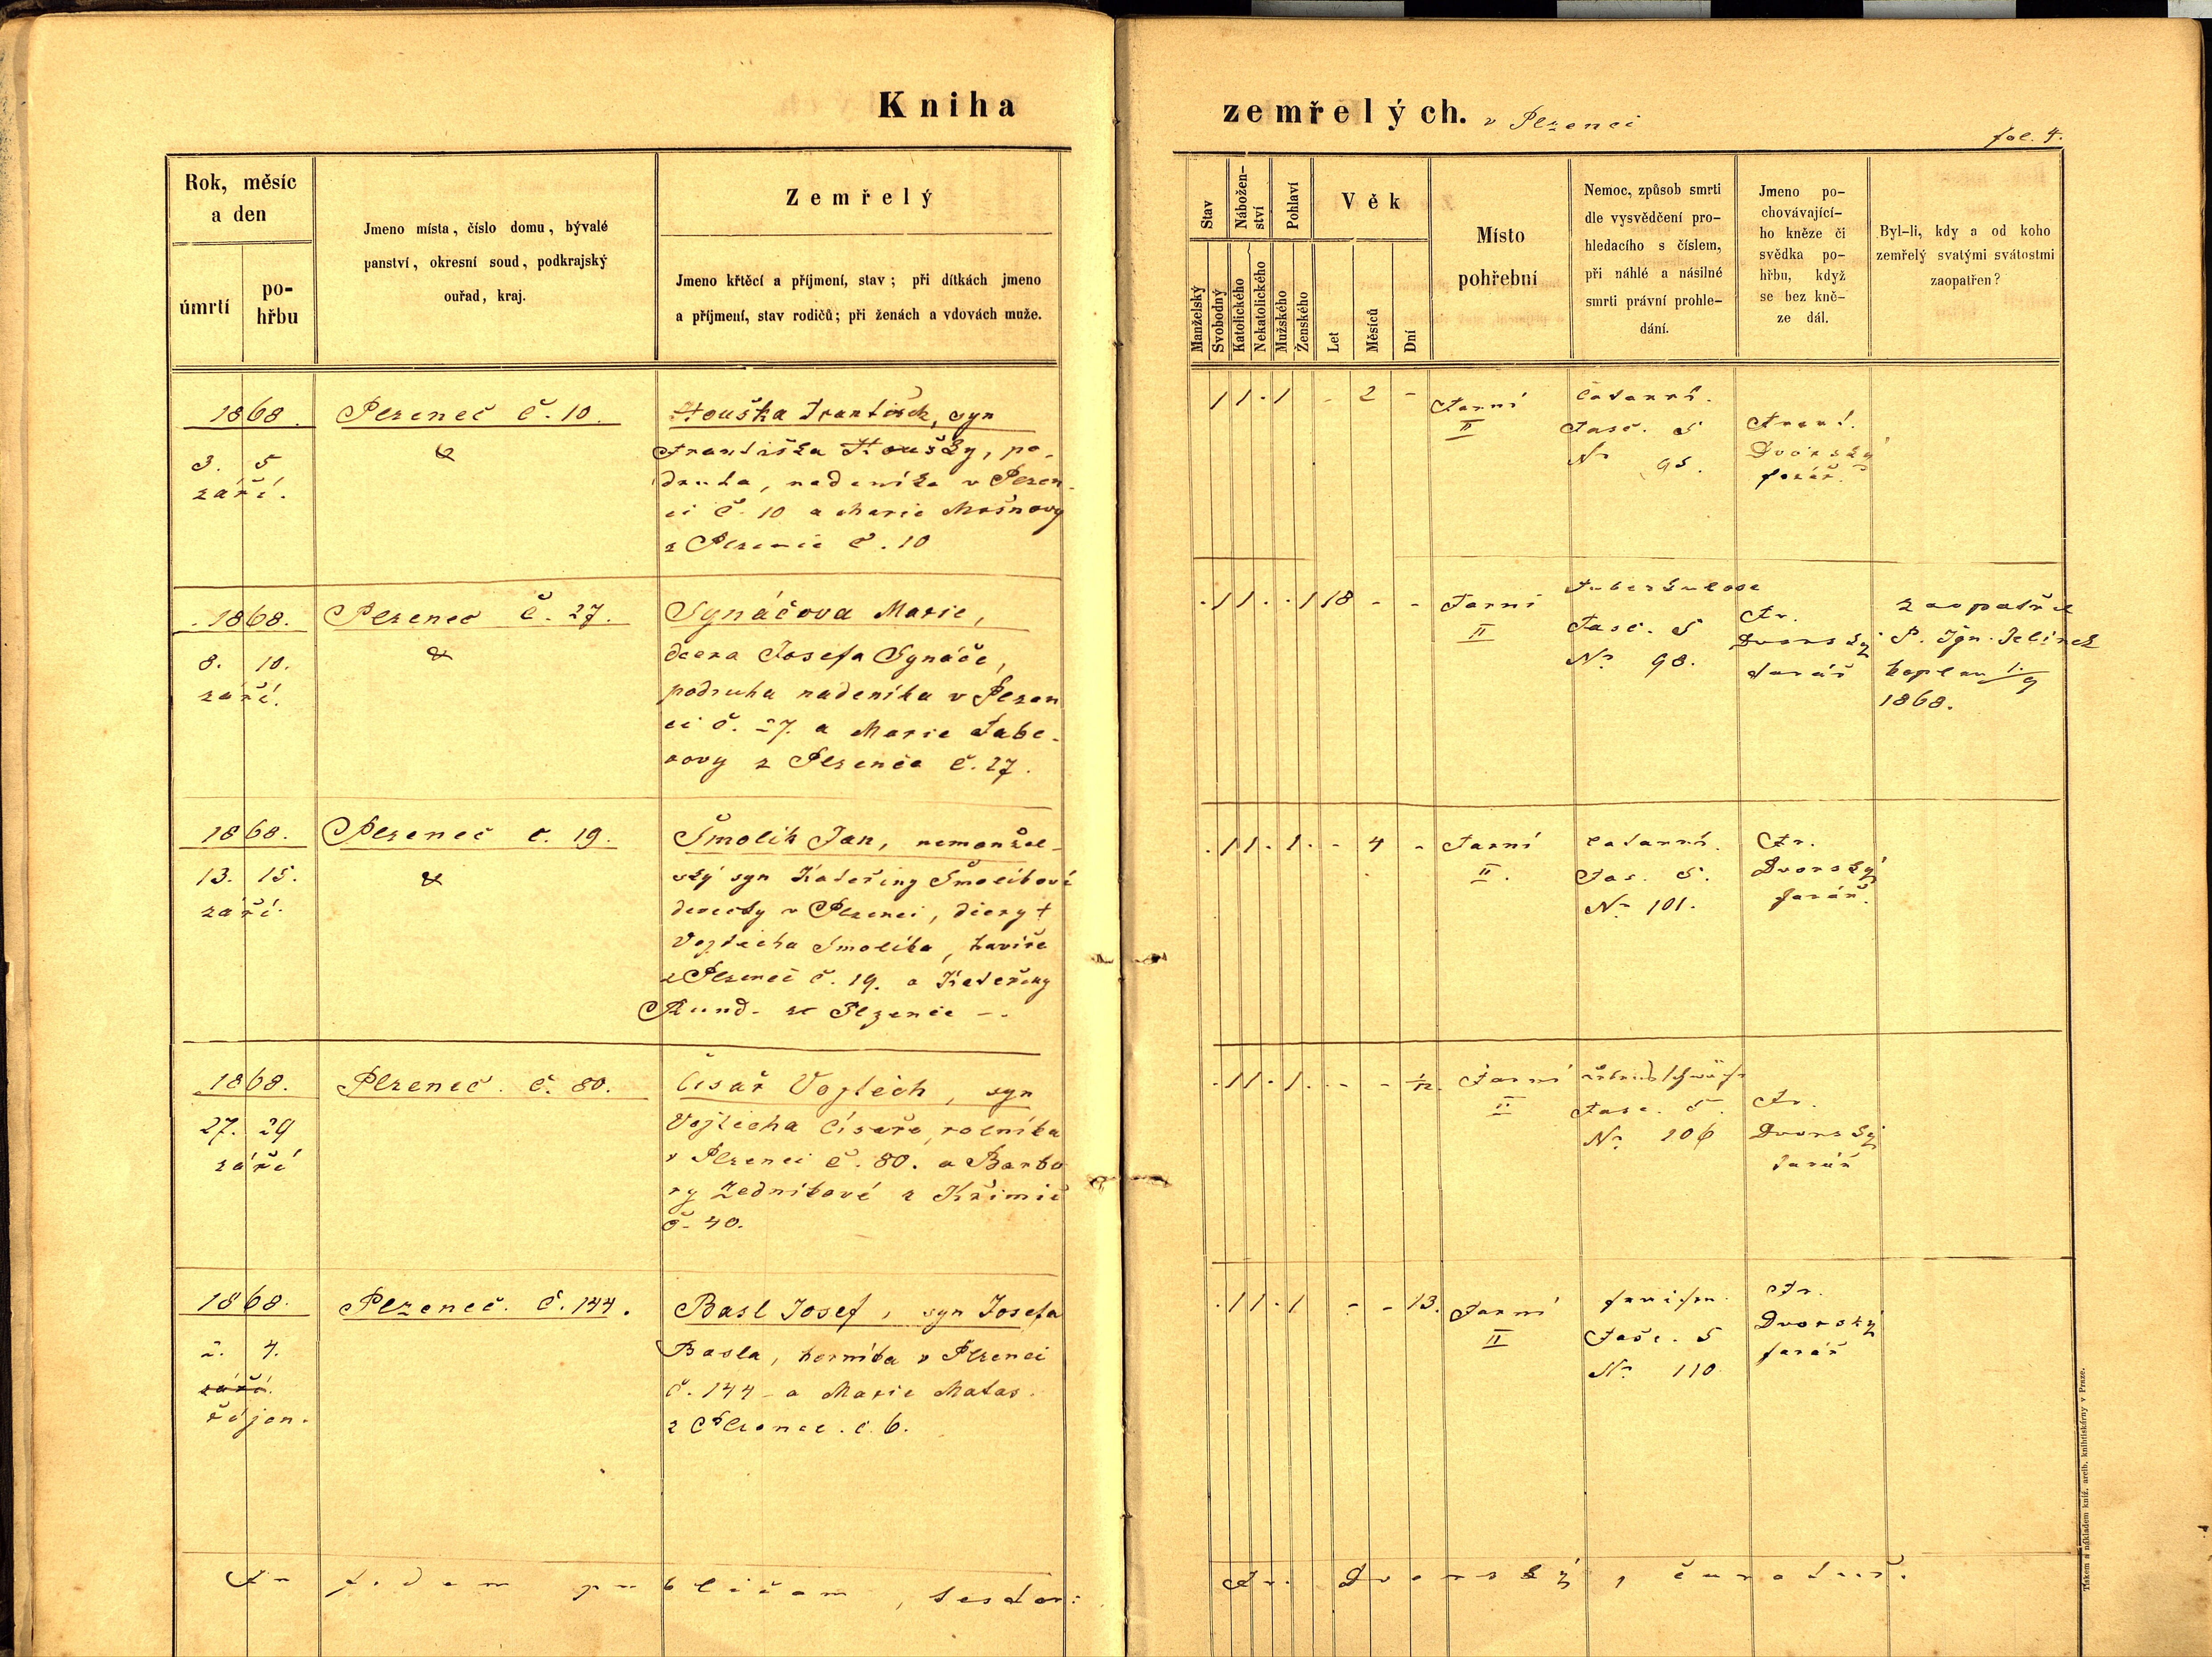 Kniha
zemřelých. v Plzenci
fol. 4.
Rok, měsíc
a den
úmrtí
po-
hřbu
Jmeno místa, číslo domu, bývalé
panství, okresní soud, podkrajský
ouřad, kraj.
Zemřelý
Jmeno křtěcí a příjmení, stav; při dítkách jmeno
a příjmení, stav rodičů; při ženách a vdovách muže.
Stav
Nábožen-
ství
Pohlaví
Manželský
Svobodný
Katolického
Nekatolického
Mužského
Ženského
Věk
Let
Měsíců
Dní
Místo
pohřební
Nemoc, způsob smrti
dle vysvědčení pro-
hledacího s číslem,
při náhlé a násilné
smrti právní prohle-
dání.
Jmeno po-
chovávající-
ho kněze či
svědka po-
hřbu, když
se bez kně-
ze dál.
Byl-li, kdy a od koho
zemřelý svatými svátostmi
zaopatřen?
1868.
3. 5
září.
Plzeneč č. 10.
Houška František, syn
Františka Houšky, po-
druha, nadeníka v Plzen-
ci č. 10 a Marie
z Plzence č. 10
1 1 . 1 - 2 -
Farní
II
Catarrh.
Fasc. 5
Nr 95.
Frant.
Dvorský
farář.
1868.
8. 10.
září.
Plzenec č. 27.
Synáčova Marie,
dcera Josefa Synáče,
podruha nadeníka v Plzen
ci č. 27. a Marie Fabe-
rovy z Plzence č. 27.
. 1 1 . . 1 18 - -
Farní
II
Tuberkulose
Fasc. 5
Nr 98.
Fr.
Dvorský
farář
zaopatřil
P. Ign. Jelínek
kaplan 1./9
1868.
1868.
13. 15.
září.
Plzeneč č. 19.
Šmolík Jan, nemanžel-
ský syn Kateřiny Šmolíkové
děvečky v Plzenci, dcery †
Vojtěcha Šmolíka, havíře
z Plzenec č. 19. a Kateřiny
. 1 1 . 1 . - 4 -
Farní
II.
Catarrh.
Fas. 5.
Nr 101.
Fr.
Dvorský
farář.
1868.
27. 29
září
Plzeneč. č. 80.
Císař Vojtěch, syn
Vojtěcha Císaře, rolníka
v Plzenci č. 80. a Barbo
ry Zedníkové z Křimic
č. 40.
. 1 1 . 1 . - - 1/12.
Farní
II
Fasc. 5.
Nr 106
Fr.
Dvorský
farář
1868.
2. 4.
září.
říjen.
Plzeneč. č. 144.
Basl Josef, syn Josefa
Basla, horníka v Plzenci
č. 144 a Marie Matas.
z Plzenec. č. 6.
. 1 1 . 1 - - 13.
Farní
II
Fraisen.
Fasc. 5
Nr 110
Fr.
Dvorský
farář
In fidem publicam, testor:
Fr. Dvorský,
Tiskem a nákladem kníž. arcib. knihtiskárny v Praze.